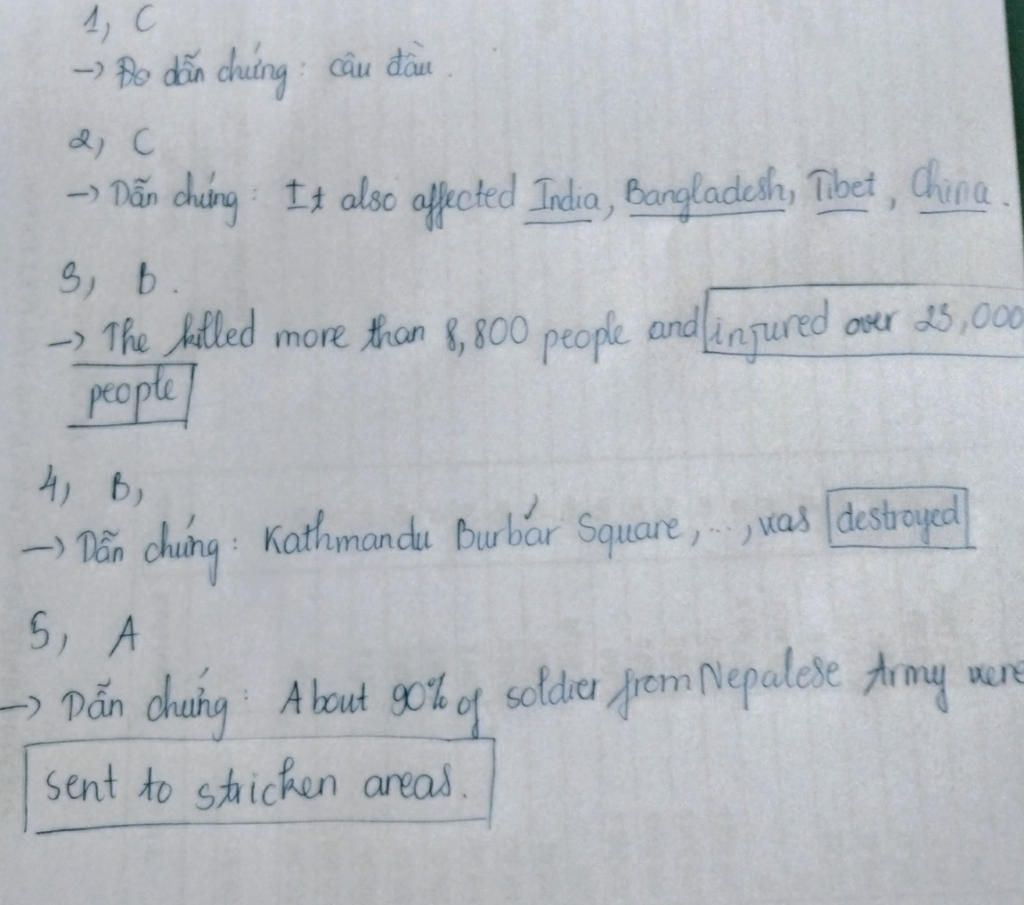 1, C
→ Do dẫn chứng: câu đầu.
2, C
→ Dẫn chứng: It also affected India, Bangladesh, Tibet, China.
3, B.
→ The killed more than 8,800 people and injured over 23,000
people
4, B,
→ Dẫn chứng: Kathmandu Burbar Square, ..., was destroyed
5, A
→ Dẫn chứng: About 90% of soldier from Nepalese Army were
sent to stricken areas.